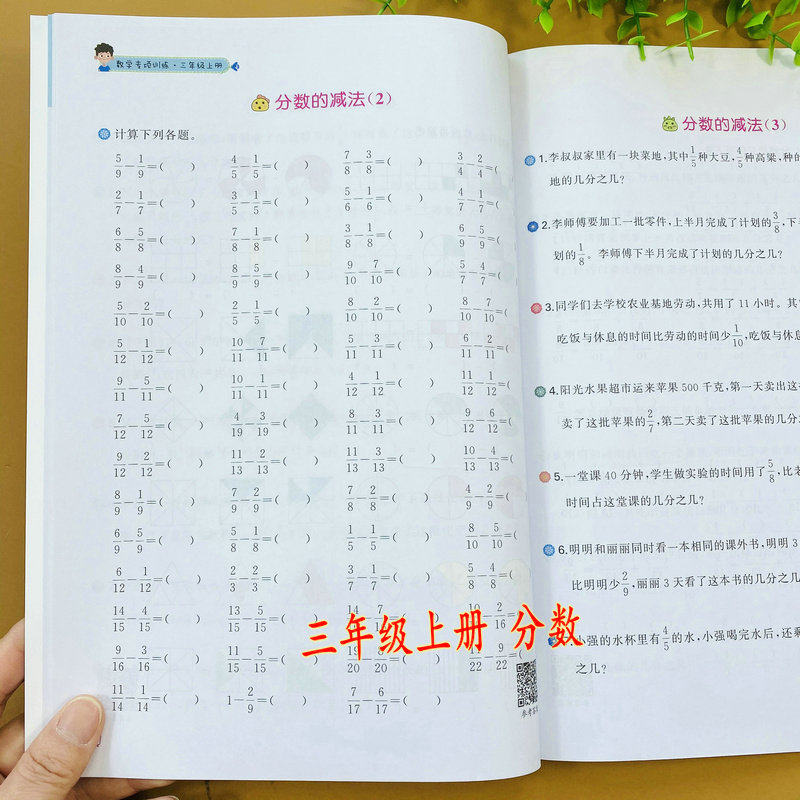 数学专项训练·三年级上册
分数的减法(2)
计算下列各题。
5/9-1/9=( ) 4/5-1/5=( ) 7/8-3/8=( ) 3/4-2/4=(
2/7-1/7=( ) 3/5-1/5=( ) 5/6-1/6=( ) 4/9-1/9=(
6/8-5/8=( ) 7/8-1/8=( ) 3/8-1/8=( ) 6/9-5/9=(
8/9-4/9=( ) 8/9-5/9=( ) 9/10-7/10=( ) 5/7-4/7=(
5/10-2/10=( ) 2/5-1/5=( ) 8/10-2/10=( ) 8/10-7/10=(
5/12-1/12=( ) 10/11-7/11=( ) 5/11-3/11=( ) 6/11-2/11=(
9/11-5/11=( ) 10/11-1/11=( ) 4/12-1/12=( ) 11/12-1/12=(
7/12-5/12=( ) 4/19-3/19=( ) 8/11-3/11=( ) 9/12-6/12=(
9/12-2/12=( ) 11/13-2/13=( ) 11/13-3/13=( ) 10/13-4/13=(
8/9-1/9=( ) 7/9-2/9=( ) 7/8-2/8=( ) 4/9-2/9=(
6/9-5/9=( ) 5/8-1/8=( ) 1/5-1/5=( ) 8/10-5/10=(
6/12-1/12=( ) 2/3-2/3=( ) 3/7-1/7=( ) 5/8-4/8=(
14/15-4/15=( ) 13/15-5/15=( )
9/16-3/16=( ) 7/11-5/11=(
11/14-1/14=( ) 1-2/9=( ) 7/17-6/17=( )
三年级上册 分数
分数的减法(3)
1.李叔叔家里有一块菜地,其中1/5种大豆,4/5种高粱,种的
地的几分之几?
2.李师傅要加工一批零件,上半月完成了计划的3/8,下
划的1/8。李师傅下半月完成了计划的几分之几?
3.同学们去学校农业基地劳动,共用了11小时。其
吃饭与休息的时间比劳动的时间少1/10,吃饭与休息
4.阳光水果超市运来苹果500千克,第一天卖出这
卖了这批苹果的2/7,第二天卖了这批苹果的几分
5.一堂课40分钟,学生做实验的时间用了5/8,比老
时间占这堂课的几分之几?
6.明明和丽丽同时看一本相同的课外书,明明3
比明明少2/9,丽丽3天看了这本书的几分之几
小强的水杯里有4/5的水,小强喝完水后,还剩
之几?